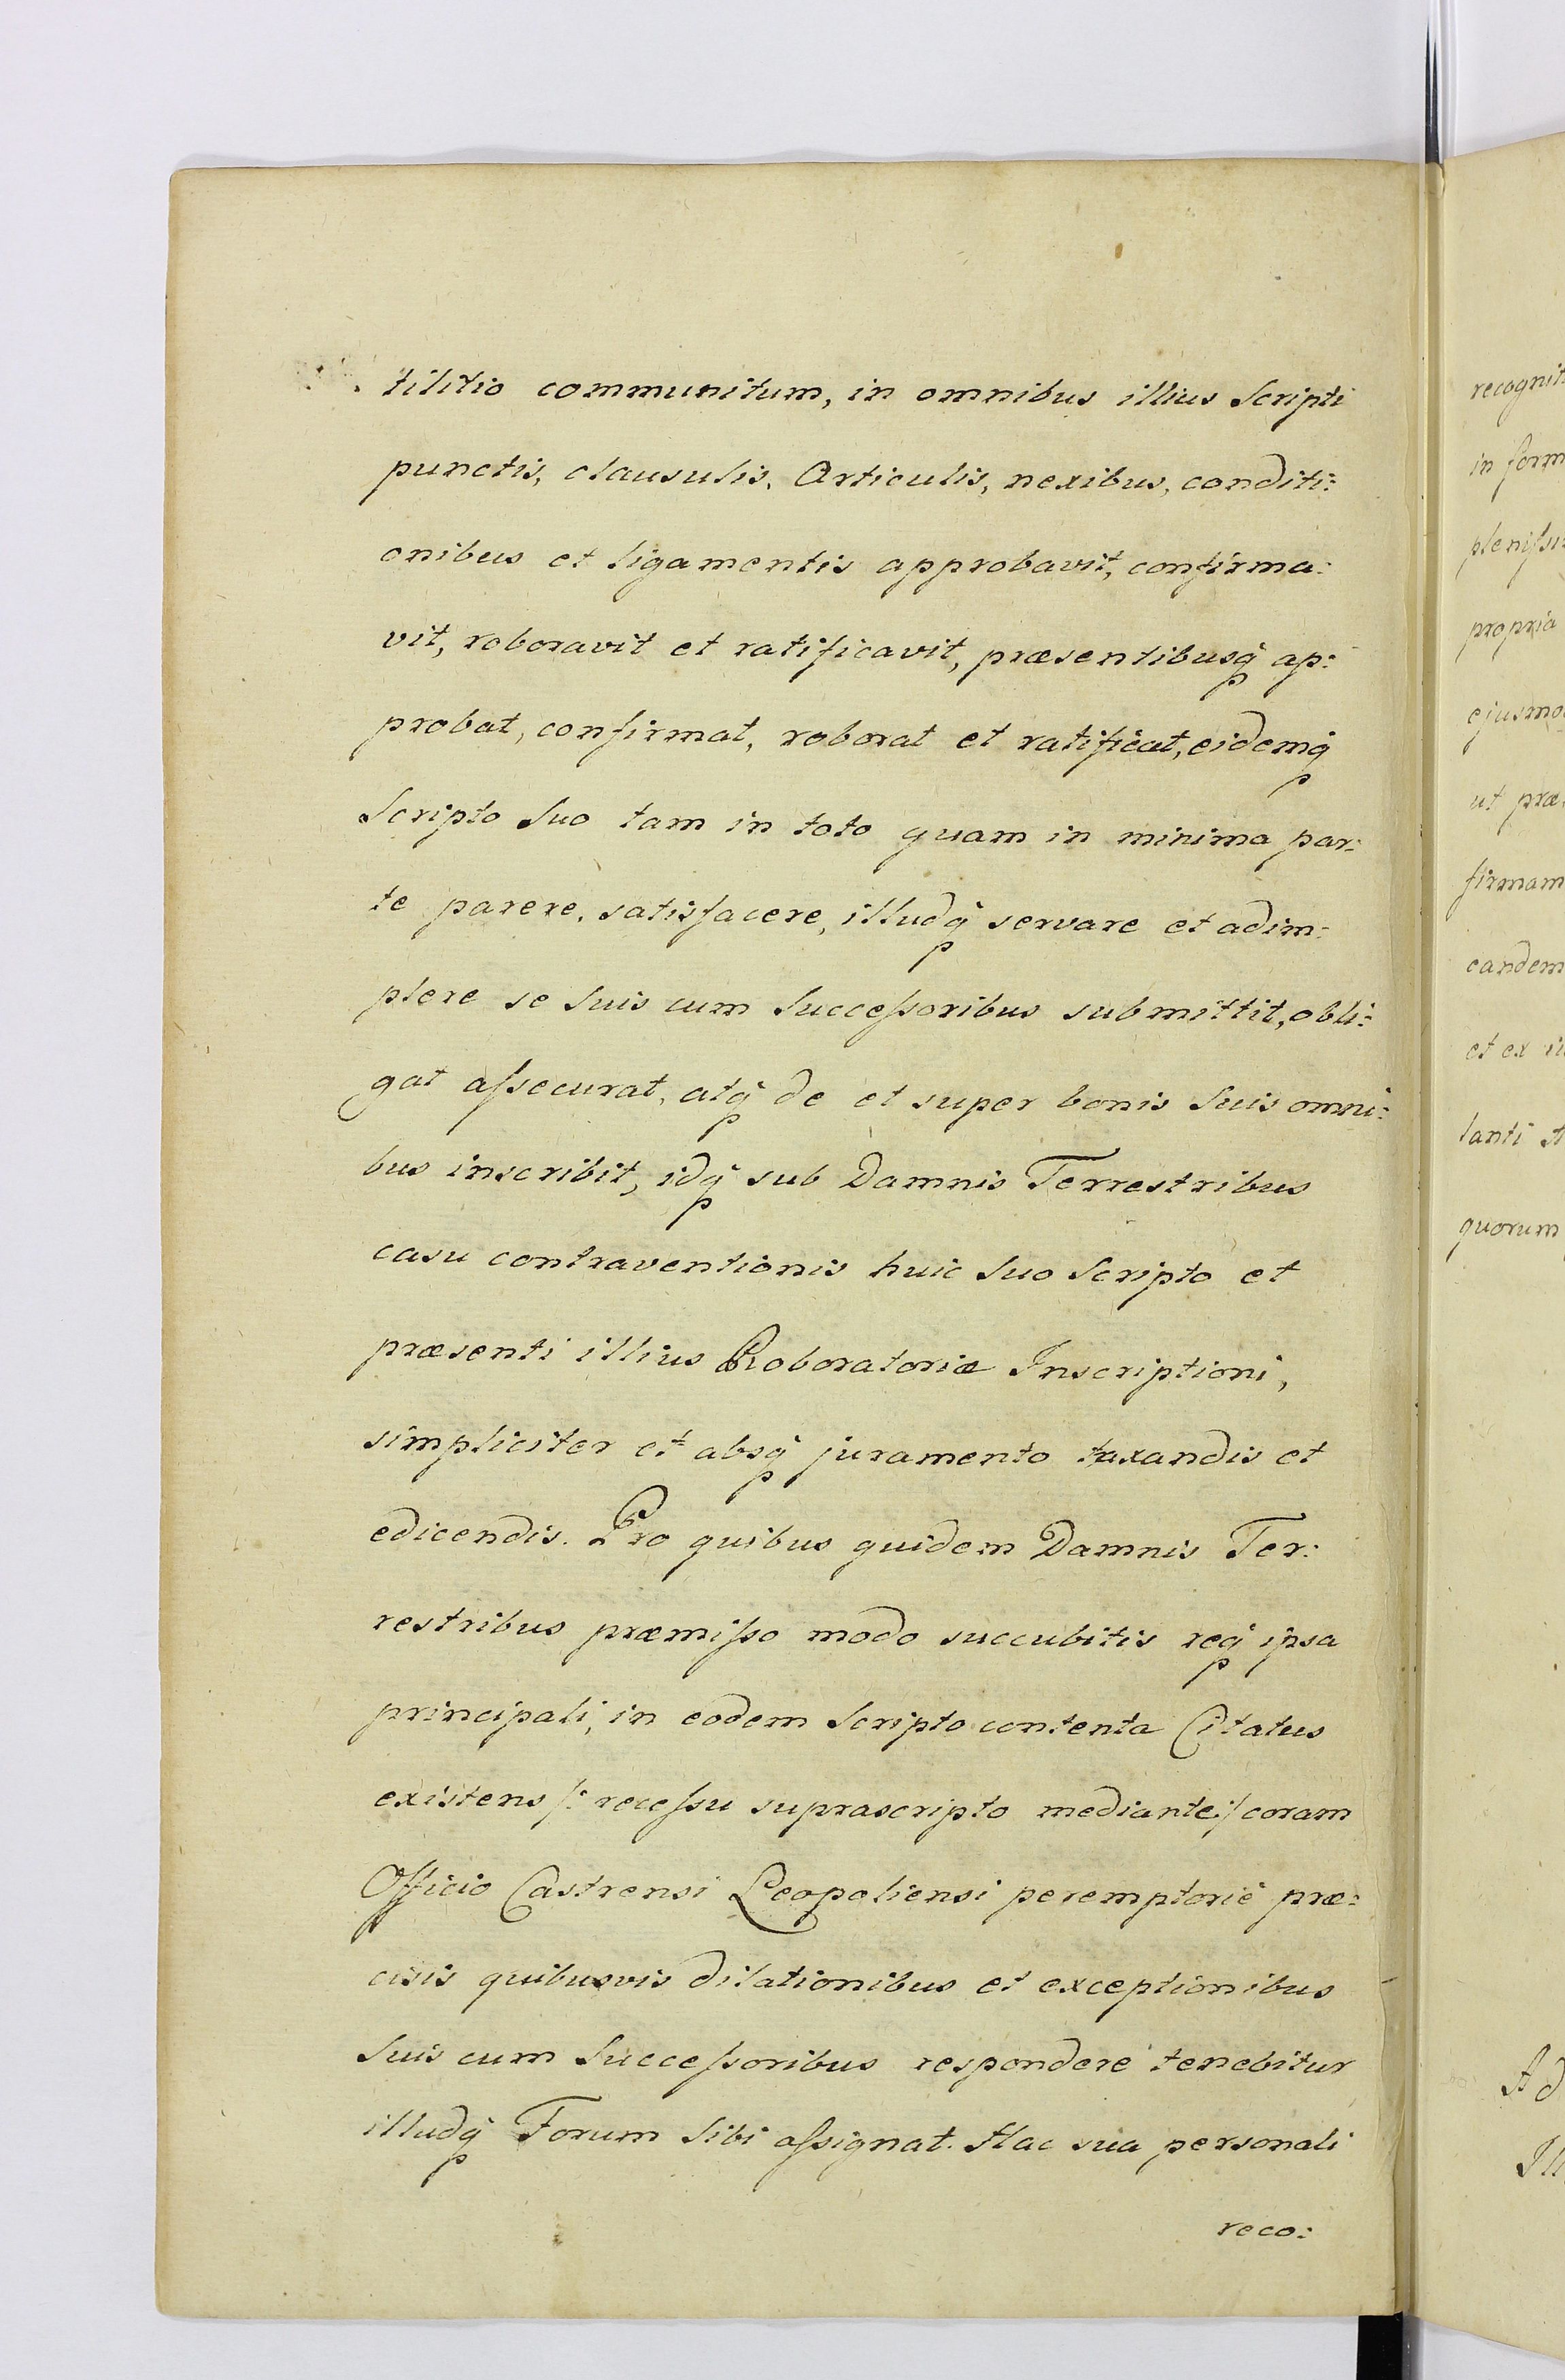 tilitio communitum, in omnibus illius Scripti
punctis, clausulis, Articulis, nexibus, conditi:
onibus et ligamentis approbavit, confirma:
vit, roboravit et ratificavit, præsentibusq̃ ap:
probat, confirmat, roborat et ratificat, eidemq̃
Scripto Suo tam in toto quam in minima par:
te parere, satisfacere, illudq̃ servare et adim:
plere se Suis cum Succeſsoribus submittit, obli:
gat aſsecurat, atq̃ de et super bonis Suis omni:
bus inscribit, idq̃ sub Damnis Terrestribus
casu contraventionis huic Suo Scripto et
præsenti illius Roboratoriæ Inscriptioni,
simpliciter et absq̃ juramento taxandis et
edicendis. Pro quibus quidem Damnis Ter:
restribus præmiſso modo succubitis req̃ ipsa
principali, in eodem Scripto contenta Citatus
existens /: receſsu suprascripto mediante :/ coram
Officio Castrensi Leopoliensi peremptorie præ:
cisis quibusvis dilationibus et exceptionibus
Suis cum Succeſsoribus respondere tenebitur
illudq̃ Forum Sibi aſsignat. Hac sua personali
reco:
recognit
in form
pleniſsi:
propria
ejusmo
ut præ
firmam
eandem
et ex
tanti
quorum
Ad